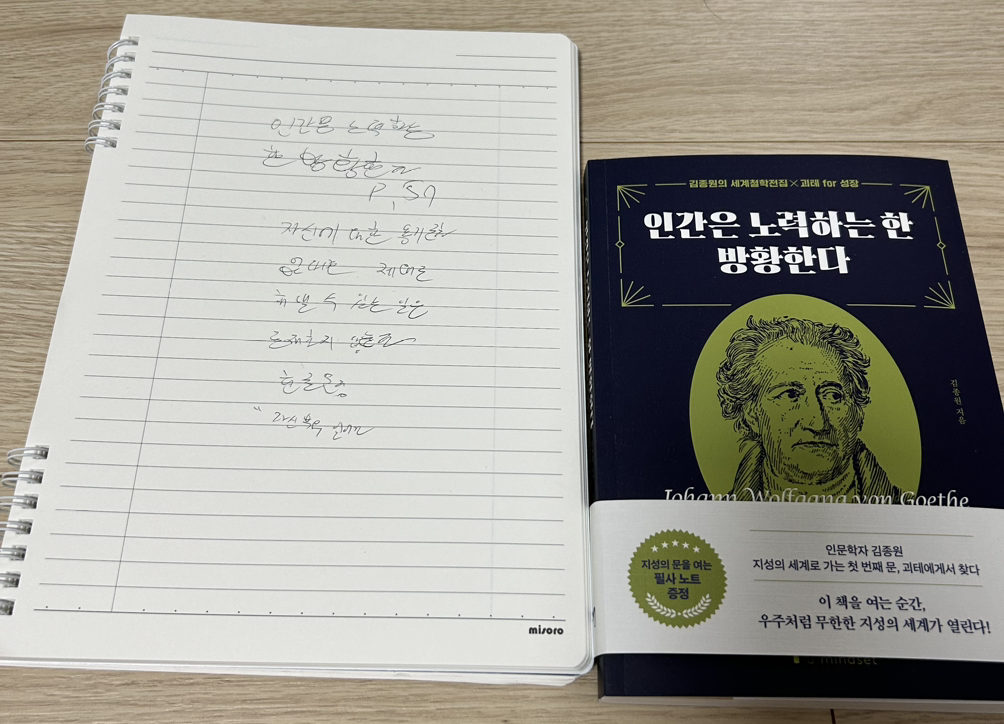 인간은 노력하는
한 방황한다
P, 59
자신에 대한 통제력
없이는 제대로
해낼 수 있는 일은
존재하지 않는다
misoro
김종원의 세계철학전집 × 괴테 for 성장
인간은 노력하는 한
방황한다
김종원 지음
Johann Wolfgang von Goethe
지성의 문을 여는
필사 노트
증정
인문학자 김종원
지성의 세계로 가는 첫 번째 문, 괴테에게서 찾다
이 책을 여는 순간,
우주처럼 무한한 지성의 세계가 열린다!
mindset